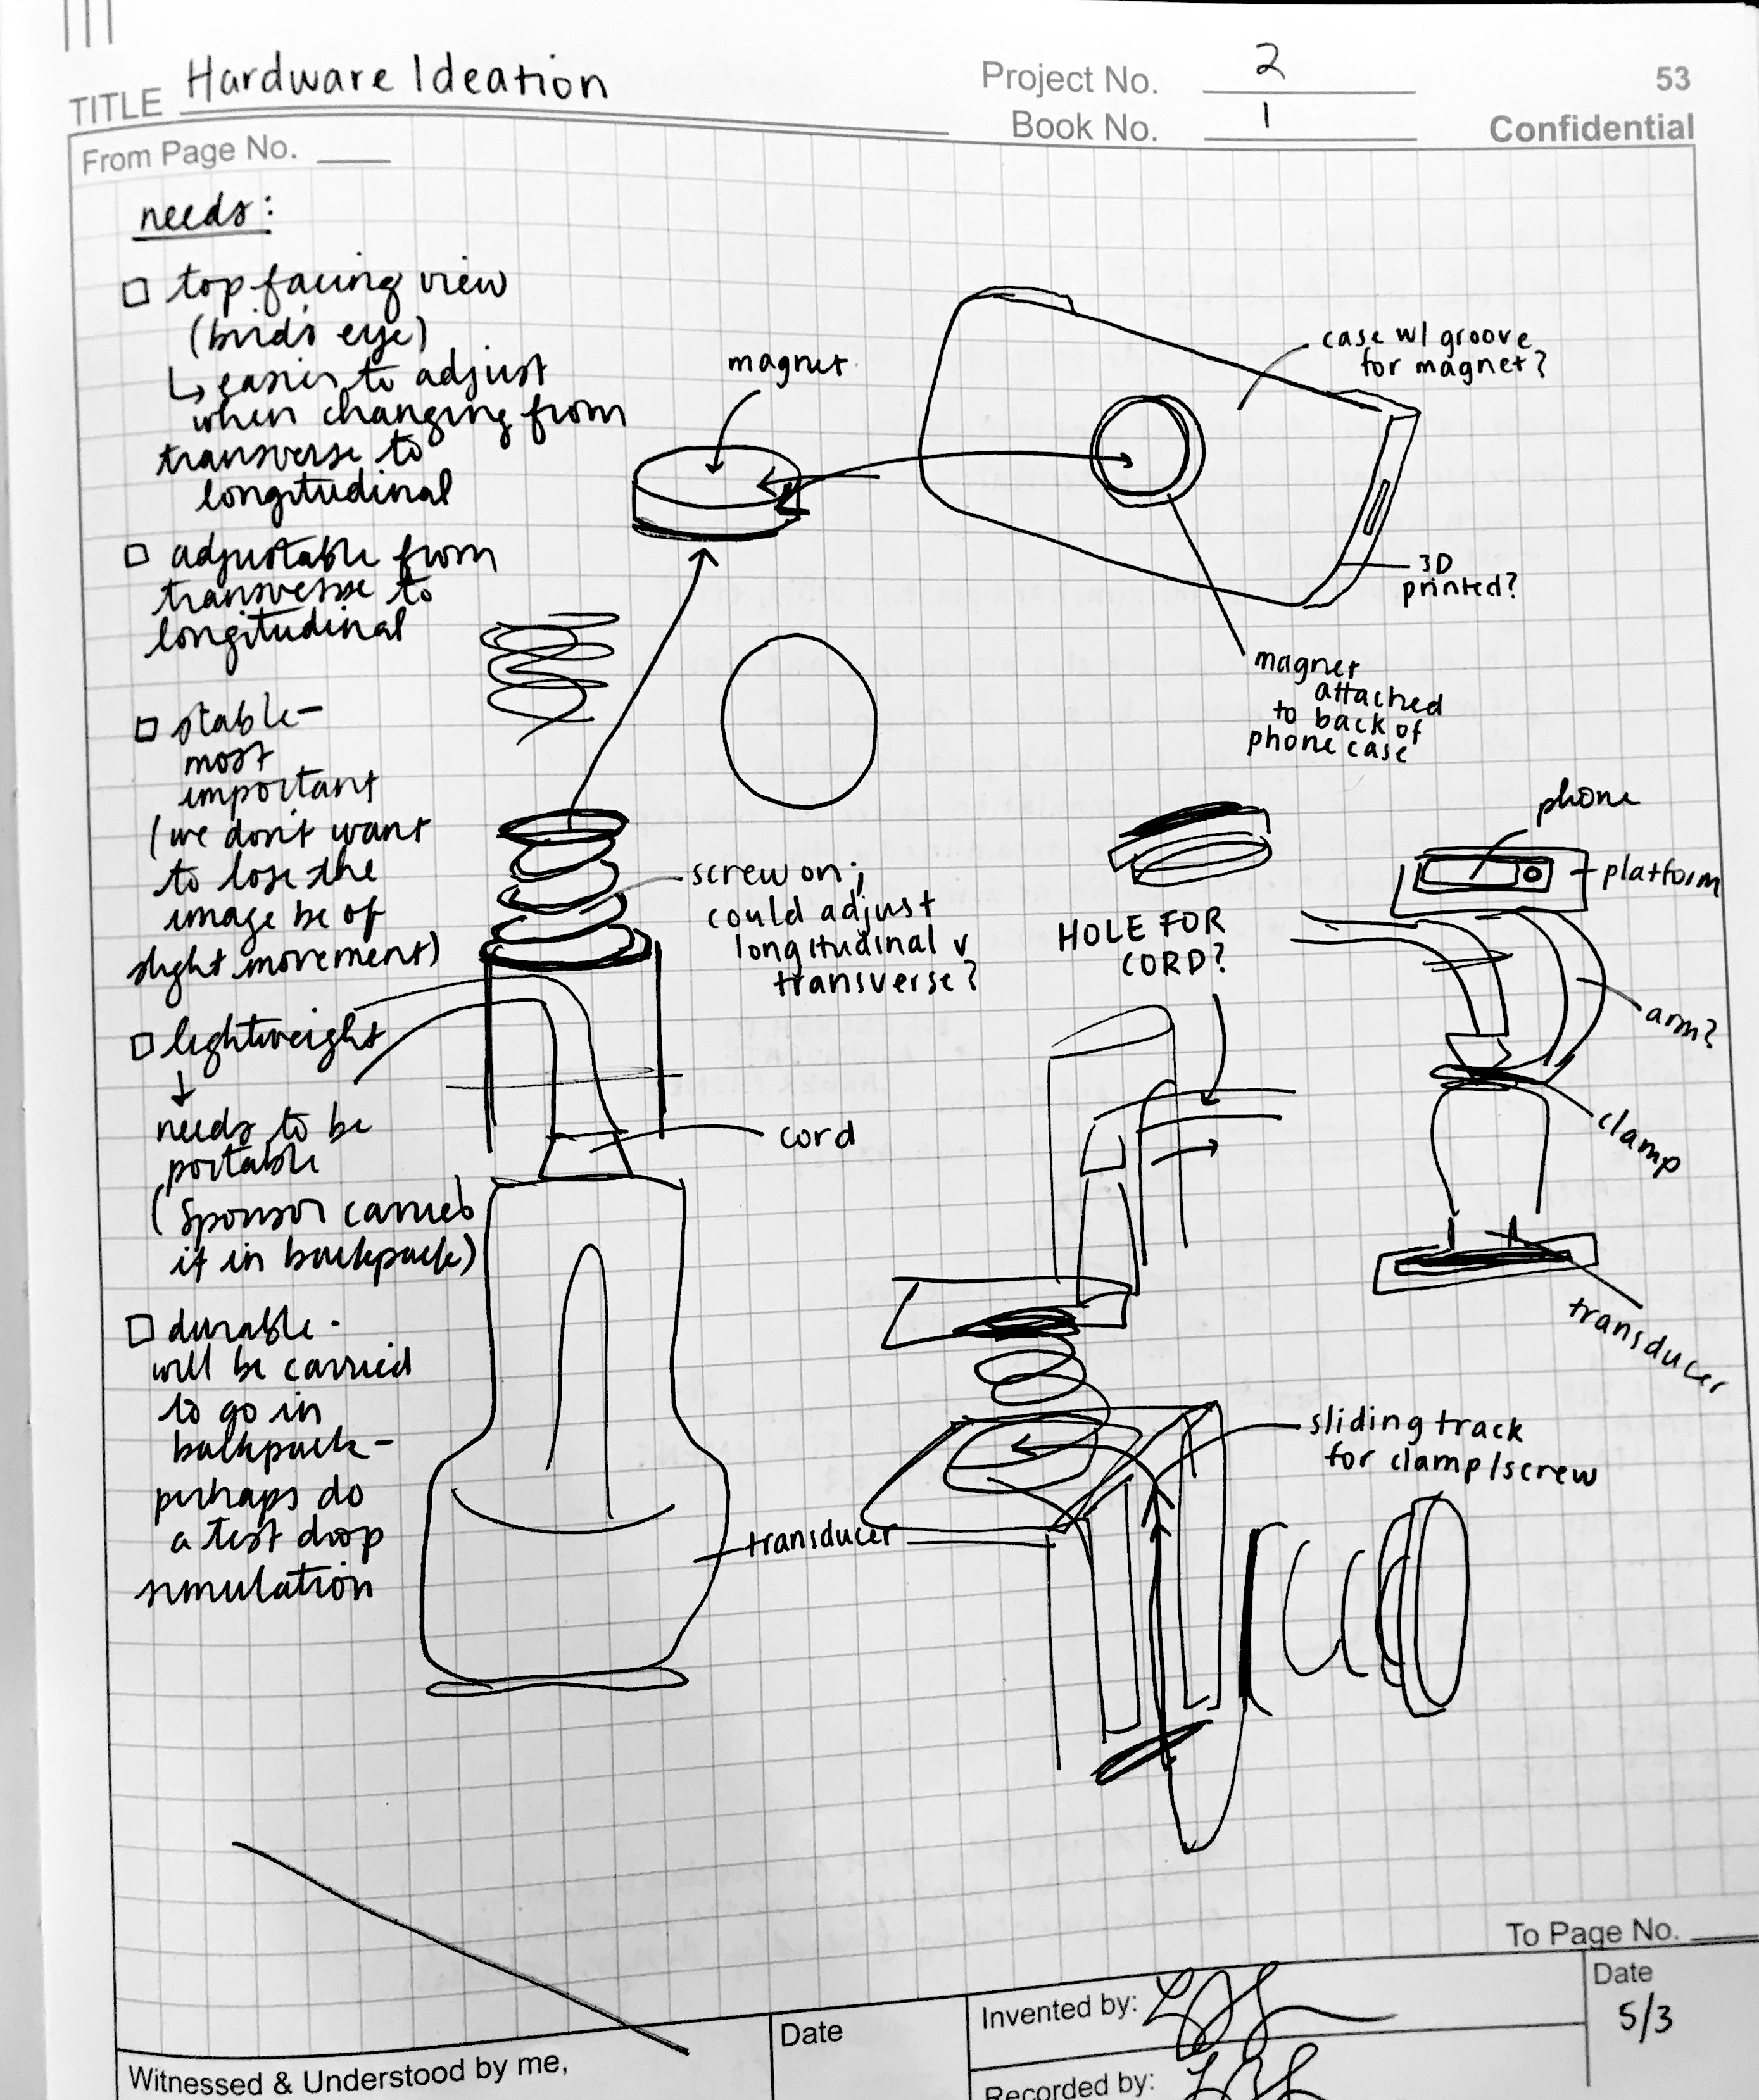 TITLE Hardware Ideation
Project No. 2
Book No. 1
53
Confidential
From Page No.
needs:
top facing view
(bird's eye)
↳ easier to adjust
when changing from
transverse to
longitudinal
adjustable from
transverse to
longitudinal
stable-
most
important
(we don't want
to lose the
image bc of
slight movement)
lightweight
↓
needs to be
portable
(sponsor carries
it in backpack)
durable -
will be carried
to go in
backpack-
perhaps do
a test drop
simulation
magnet
case w/ groove
for magnet?
3D
printed?
magnet
attached
to back of
phone case
screw on;
could adjust
longitudinal v
transverse?
cord
transducer
HOLE FOR
CORD?
phone
platform
arm?
clamp
transducer
sliding track
for clamp/screw
To Page No.
Witnessed & Understood by me,
Date
Invented by:
Recorded by:
Date
5/3